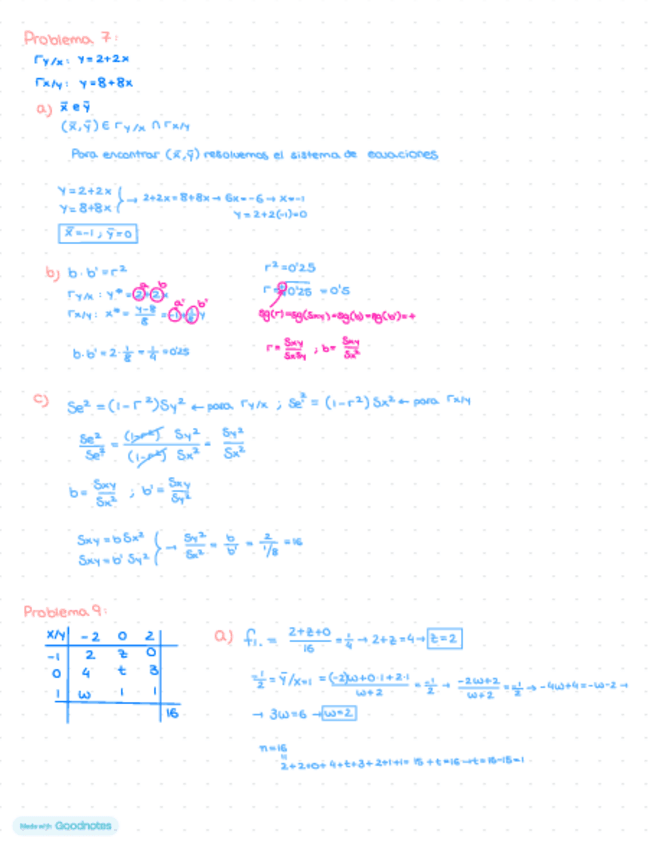 Problema 7:
r y/x: y=2+2x
r x/y: y=8+8x
a) x̄ e ȳ
(x̄,ȳ) ∈ r y/x ∩ r x/y
Para encontrar (x̄,ȳ) resolvemos el sistema de ecuaciones
y=2+2x
y=8+8x } → 2+2x=8+8x → 6x=-6 → x=-1
y=2+2(-1)=0
x̄=-1 ; ȳ=0
b) b·b'=r²
r y/x: y*=2+2x
a b
r x/y: x*= (y-8)/8 = -1+1/8 y
a' b'
b·b'=2·1/8=1/4=0'25
r²=0'25
r=+√0'25 =0'5
sg(r)=sg(Sxy)=sg(b)=sg(b')=+
r= Sxy/SxSy ; b= Sxy/Sx²
c) Se²=(1-r²)Sy² ← para r y/x ; Se'²=(1-r²)Sx² ← para r x/y
Se²/Se'² = (1-r²) Sy² / (1-r²) Sx² = Sy²/Sx²
b= Sxy/Sx² ; b'= Sxy/Sy²
Sxy=b Sx²
Sxy=b' Sy² } → Sy²/Sx² = b/b' = 2/(1/8) =16
Problema 9:
x/y -2 0 2
-1 2 z 0
0 4 t 3
1 w 1 1
16
a) f₁. = (2+z+0)/16 = 1/4 → 2+z=4 → z=2
-1/2 = ȳ/x=1 = ((-2)w+0·1+2·1)/(w+2) = -1/2 → (-2w+2)/(w+2) = -1/2 → -4w+4=-w-2 →
→ 3w=6 → w=2
n=16
"
2+2+0+4+t+3+2+1+1= 15+t=16 → t=16-15=1
Made with Goodnotes